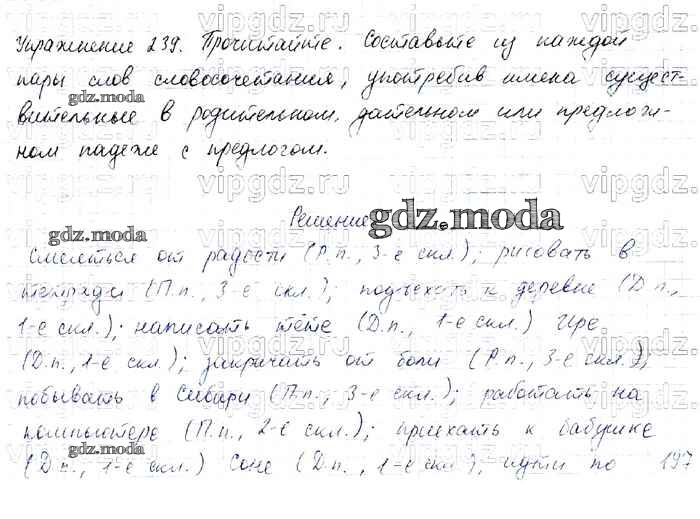 Упражнение 239. Прочитайте. Составьте из каждой
пары слов словосочетания, употребив имена сущест-
вительные в родительном, дательном или предлож-
ном падеже с предлогом.
Решение
Смеяться от радости (Р.п., 3-е скл.); рисовать в
тетради (П.п., 3-е скл.); подъехать к деревне (Д.п.,
1-е скл.); написать тёте (Д.п., 1-е скл.) Ире
(Д.п., 1-е скл.); закричать от боли (Р.п., 3-е скл.);
побывать в Сибири (П.п., 3-е скл.); работать на
компьютере (П.п., 2-е скл.); приехать к бабушке
(Д.п., 1-е скл.) Соне (Д.п., 1-е скл.); идти по 197
vipgdz.ru
gdz.moda